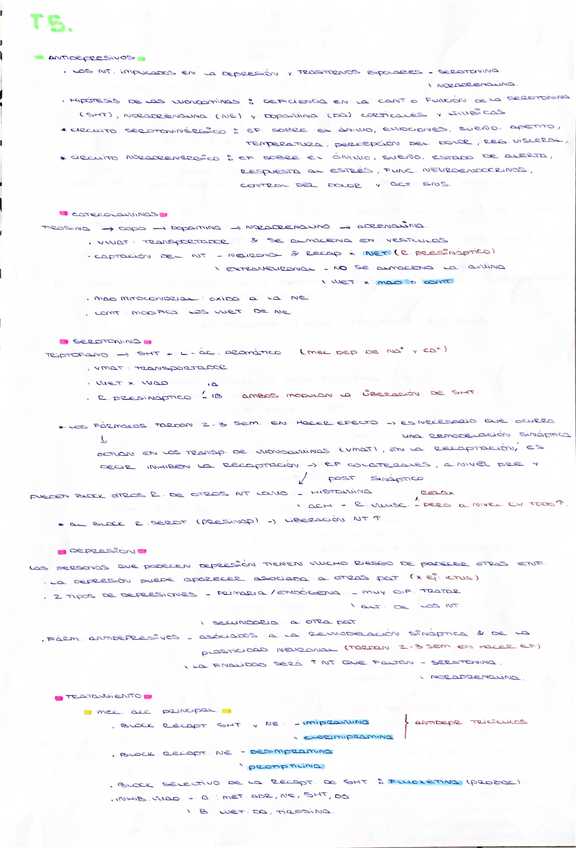 T5.
ANTIDEPRESIVOS
· LOS NT. IMPLICADOS EN LA DEPRESIÓN Y TRASTORNOS BIPOLARES - SEROTONINA
\ NORADRENALINA.
· HIPÓTESIS DE LAS MONOAMINAS : DEFICIENCIA EN LA CANT O FUNCIÓN DE LA SEROTONINA
(5HT), NORADRENALINA (NE) Y DOPAMINA (DA) CORTICALES Y LÍMBICAS
* CIRCUITO SEROTONINÉRGICO : EF SOBRE EL ÁNIMO, EMOCIONES, SUEÑO, APETITO,
TEMPERATURA, PERCEPCIÓN DEL DOLOR, REG VISCERAL,
* CIRCUITO NORADRENÉRGICO : EF SOBRE EL ÁNIMO, SUEÑO, ESTADO DE ALERTA,
RESPUESTA AL ESTRÉS, FUNC NEUROENDOCRINAS,
CONTROL DEL DOLOR Y ACT SNS
CATECOLAMINAS
TIROSINA → DOPA → DOPAMINA → NORADRENALINA → ADRENALINA.
· VMAT: TRANSPORTADOR & SE ALMACENA EN VESÍCULAS
· CAPTACIÓN DEL NT - NEURONA & RECAP x NET (R. PRESINÁPTICO)
\ EXTRANEURONAL - NO SE ALMACENA LA AMINA
\ MET x MAO O COMT
· MAO MITOCONDRIAL: OXIDA A LA NE
· COMT: MODIFICA LOS MET DE NE
SEROTONINA
TRIPTÓFANO → 5HT + L-ÁC. AROMÁTICO (MEC DEP DE Na⁺ Y Ca⁺)
· VMAT: TRANSPORTADOR
· MET x MAO
· R. PRESINÁPTICO - 1A
\ 1B AMBOS MODULAN LA LIBERACIÓN DE 5HT.
* LOS FÁRMACOS TARDAN 2-3 SEM. EN HACER EFECTO → ES NECESARIO QUE OCURRA
UNA REMODELACIÓN SINÁPTICA
ACTÚAN EN LOS TRANSP. DE MONOAMINAS (VMAT), EN LA RECAPTACIÓN, ES
DECIR INHIBEN LA RECAPTACIÓN → EF COLATERALES, A NIVEL PRE Y
POST SINÁPTICO
PUEDEN BLOCK OTROS R. DE OTROS NT COMO - HISTAMINA RELAX
\ ACH - R. MUSC. - PERO A NIVEL CV TODO↑.
* AL BLOCK R. SEROT (PRESINAP) → LIBERACIÓN NT ↑
DEPRESIÓN
LAS PERSONAS QUE PADECEN DEPRESIÓN TIENEN MUCHO RIESGO DE PADECER OTRAS ENF.
· LA DEPRESIÓN PUEDE APARECER ASOCIADA A OTRAS PAT (x ej: ICTUS)
· 2 TIPOS DE DEPRESIONES - PRIMARIA / ENDÓGENA - MUY DIF. TRATAR
\ ALT. DE LOS NT.
\ SECUNDARIA A OTRA PAT
· FÁRM. ANTIDEPRESIVOS - ASOCIADOS A LA REMODELACIÓN SINÁPTICA & DE LA
PLASTICIDAD NEURONAL (TARDAN 2-3 SEM EN HACER EF)
\ LA FINALIDAD SERÁ ↑ NT QUE FALTAN - SEROTONINA.
\ NORADRENALINA.
TRATAMIENTO
MEC. ACC PRINCIPAL
· BLOCK RECAPT 5HT Y NE. - IMIPRAMINA
\ CLORIMIPRAMINA
ANTIDEPR TRICÍCLICOS
· BLOCK RECAPT NE - DESIMIPRAMINA
\ PROTRIPTILINA
· BLOCK SELECTIVO DE LA RECAPT DE 5HT : FLUOXETINA (PROZAC)
· INHIB. MAO - A : MET ADR, NE, 5HT, DA
\ B: MET. DA, TIROSINA.